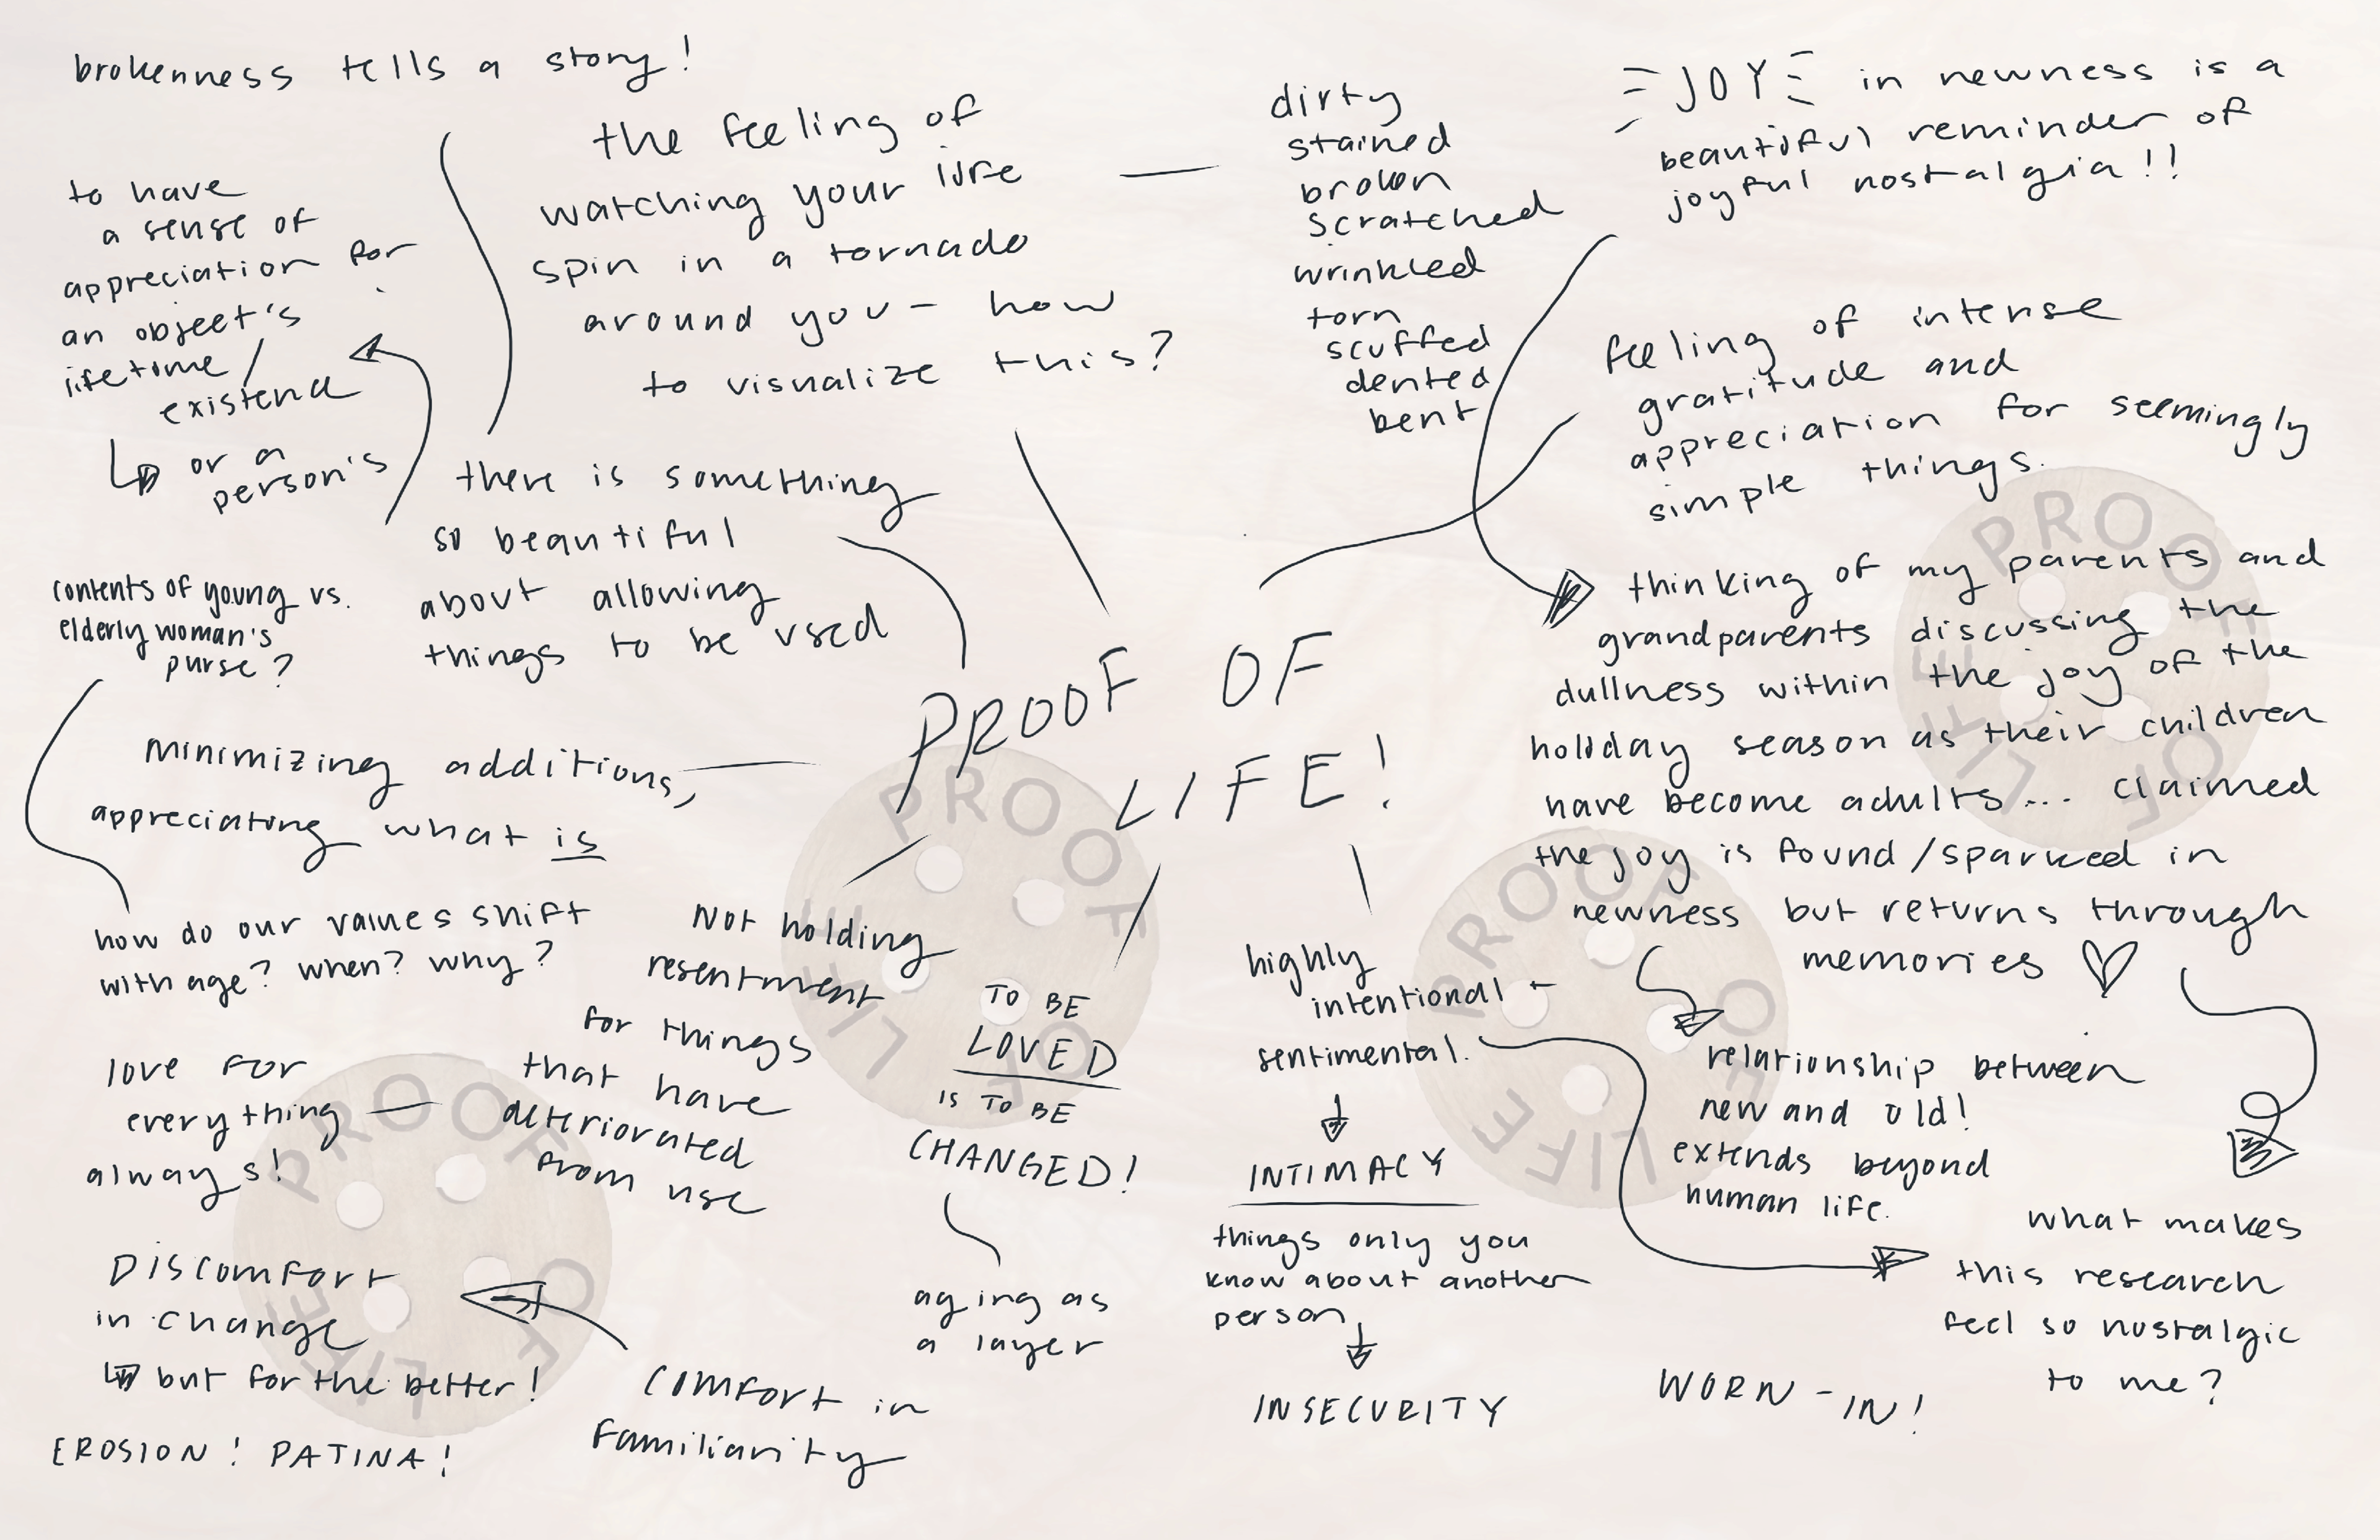 brokenness tells a story!
to have
a sense of
appreciation for
an object's
lifetime /
existence
or a
person's
the feeling of
watching your life
spin in a tornado
around you - how
to visualize this?
dirty
stained
broken
scratched
wrinkled
torn
scuffed
dented
bent
JOY in newness is a
beautiful reminder of
joyful nostalgia!!
feeling of intense
gratitude and
appreciation for seemingly
simple things.
there is something
so beautiful
about allowing
things to be used
contents of young vs.
elderly woman's
purse?
PROOF OF
LIFE!
thinking of my parents and
grandparents discussing the
dullness within the joy of the
holiday season as their children
have become adults... claimed
the joy is found/sparked in
newness but returns through
memories
minimizing additions,
appreciating what is
how do our values shift
with age? when? why?
Not holding
resentment
for things
that have
deteriorated
from use
love for
everything
always!
TO BE
LOVED
IS TO BE
CHANGED!
aging as
a layer
highly
intentional +
sentimental.
INTIMACY
things only you
know about another
person
INSECURITY
relationship between
new and old!
extends beyond
human life.
what makes
this research
feel so nostalgic
to me?
WORN-IN!
DISCOMFORT
in change
but for the better!
COMFORT in
familiarity
EROSION! PATINA!
PROOF OF LIFE
PROOF OF LIFE
PROOF OF LIFE
PROOF OF LIFE